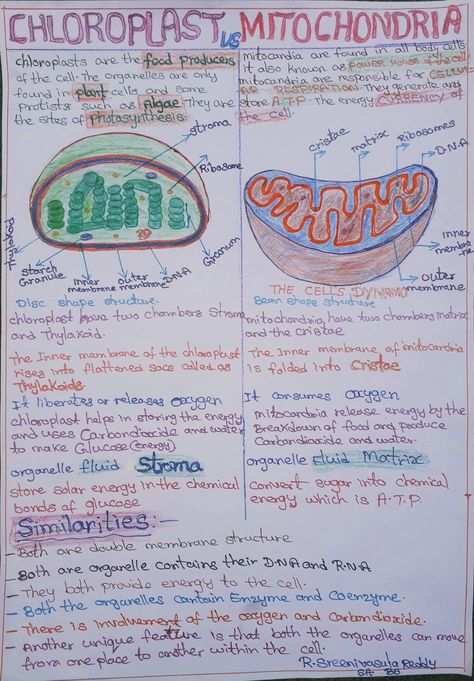 CHLOROPLAST VS MITOCHONDRIA
chloroplasts are the food producers
of the cell. The organelles are only
found in plant cells and some
protists such as Algae They are
the sites of Photosynthesis.
mitocardia are found in all body cells
it also known as power House of the cell
mitocardria are responsible for CELLUL
AR RESPIRATION. They generate and
store A.T.P. The energy CURRENCY of
the cell.
stroma
Ribosome
Thylakoid
Starch
Granule
inner
membrane
outer
membrane
D.N.A
Granum
cristae
matrix
Ribosomes
D.N.A
inner
membrane
outer
membrane
THE CELL'S DYNAMO
Disc shape structure.
chloroplast have two chambers Stroma
and Thylakoid.
The Inner membrane of the chloroplast
rises into flattened sacs called as
Thylakoids.
It liberates or releases oxygen
chloroplast helps in storing the energy
and uses Carbondioxide and water
to make Glucose (energy)
organelle fluid Stroma
store solar energy in the chemical
bonds of glucose
Bean shape structure
mitochondria, have two chambers matrix
and the cristae
The inner membrane of mitocardria
is folded into Cristae
It consumes oxygen
mitocardria release energy by the
Breakdown of food and produce
Carbondioxide and water.
organelle Fluid Matrix
convert sugar into chemical
energy which is A.T.P.
Similarities.
- Both are double membrane structure
- Both are organelle contains their D.N.A and R.N.A
- They both provide energy to the cell.
- Both the organelles contain Enzyme and Coenzyme.
- There is involvement of the oxygen and Carbondioxide.
- Another unique feature is that both the organelles can move
from one place to another within the cell.
R. Sreenivasula Reddy
SA BS